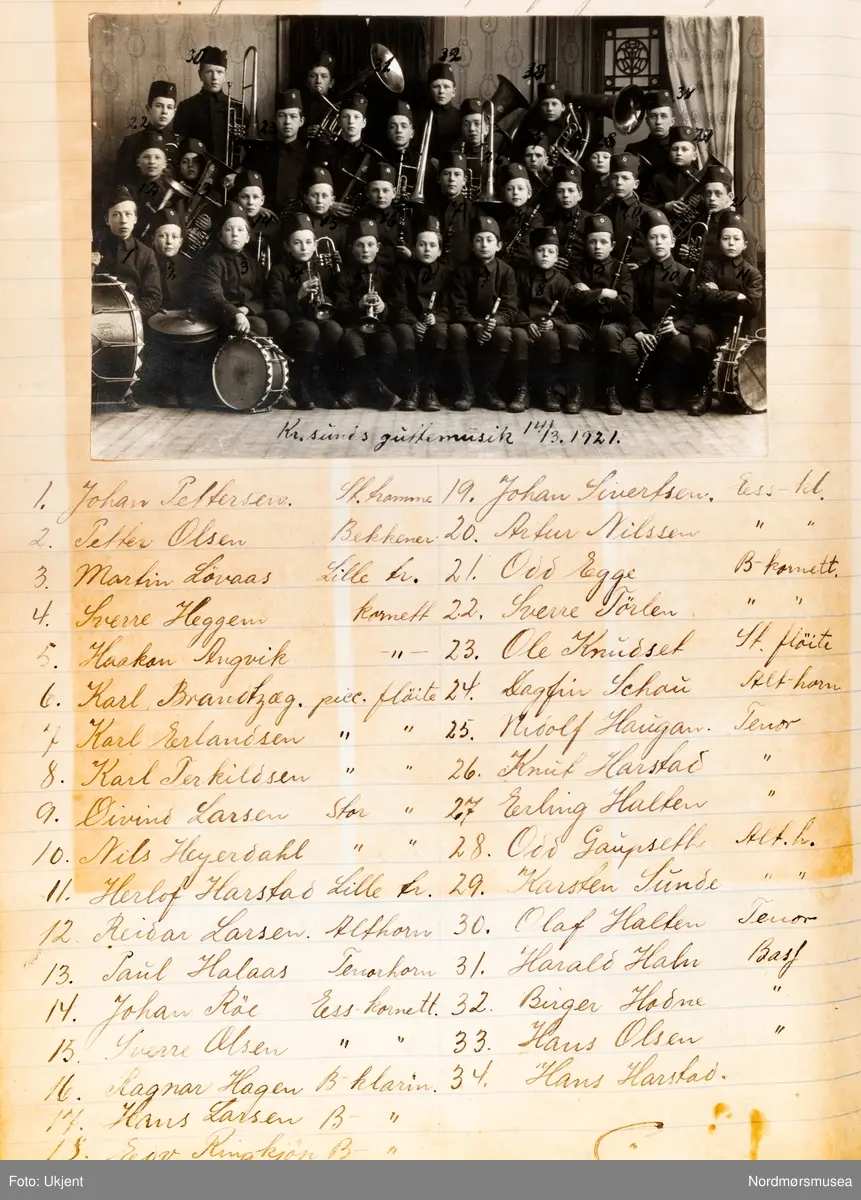 Kr.sunds guttemusik 14/3. 1921.
1. Johan Pettersen. St. tromme
2. Petter Olsen Bekkener
3. Martin Lövaas Lille tr.
4. Sverre Heggem kornett
5. Haakon Angvik -"-
6. Karl Brandtzæg. picc. flöite
7 Karl Erlandsen " "
8. Karl Terkildsen " "
9. Øivind Larsen Stor "
10. Nils Heyerdahl " "
11. Herlof Harstad Lille tr.
12. Reidar Larsen. Althorn
13. Paul Halaas Tenorhorn
14. Johan Röe Eess-kornett.
15. Sverre Olsen " "
16. Ragnar Hagen B-klarin.
17. Hans Larsen B- "
18. Ringkjøn B- "
19. Johan Sivertsen. Eess-kl.
20. Artur Nilssen " "
21. Odd Egge B-kornett.
22. Sverre Törlen " "
23. Ole Knudset St. flöite
24. Dagfin Schou Alt-horn
25. Nidolf Haugan. Tenor
26. Knut Harstad "
27 Erling Hulten "
28. Odd Gaupsett Alt.h.
29. Karsten Sunde " "
30. Olaf Halten Tenor
31. Harald Hahn Bass
32. Birger Hodne "
33. Hans Olsen "
34. Hans Harstad.
Foto: Ukjent
Nordmørsmusea